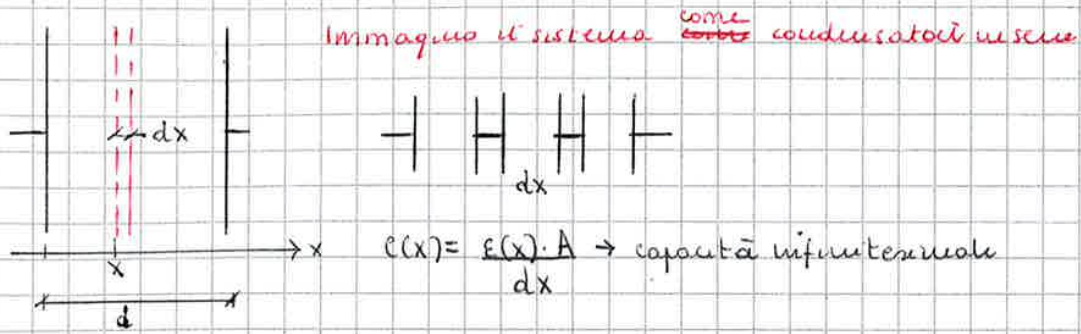 Immagino il sistema come condensatori in serie
dx
dx
C(x) = ε(x)·A / dx → capacità infinitesimale
x
x
d